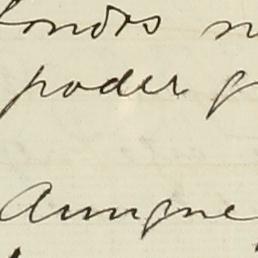 fondos n
poder g
Aunque